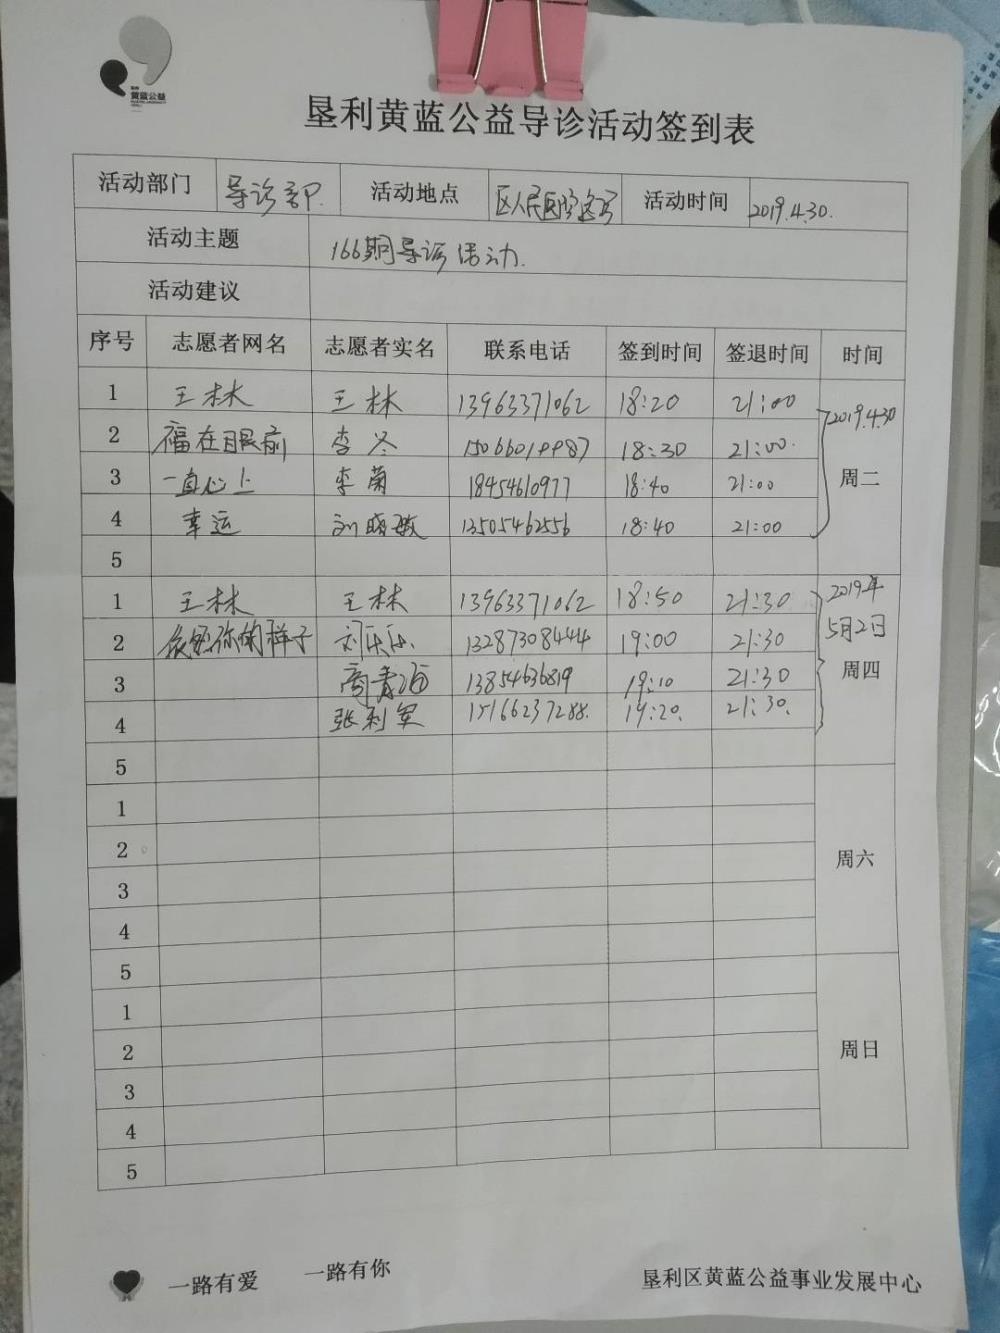 黄蓝公益
垦利黄蓝公益导诊活动签到表
活动部门 导诊部. 活动地点 区人民医院 活动时间 2019.4.30.
活动主题 166期导诊活动.
活动建议
序号 志愿者网名 志愿者实名 联系电话 签到时间 签退时间 时间
1 王林 王林 13963371062 18:20 21:00 2019.4.30
2 福在眼前 李冬 18:30 21:00.
3 一直心上 李菊 18454610977 18:40 21:00 周二
4 幸运 刘晓敏 13505462556 18:40 21:00
5
1 王林 王林 13963371062 18:50 21:30 2019年
2 依然你的样子 刘乐乐. 13287308444 19:00 21:30 5月2日
3 13854636819 19:10 21:30 周四
4 张利军 15166237288. 19:20. 21:30.
5
1
2
3 周六
4
5
1
2 周日
3
4
5
一路有爱 一路有你 垦利区黄蓝公益事业发展中心